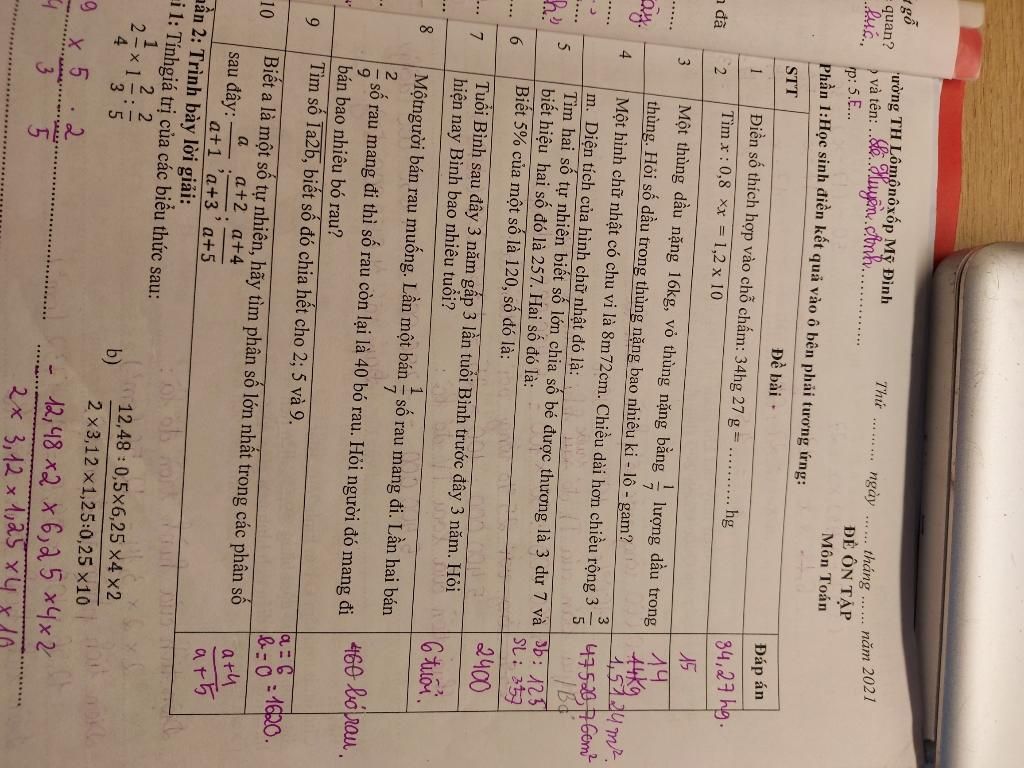 ường TH Lômônôxốp Mỹ Đình
à và tên: Lê Huyền Anh
ớp: 5E
Thứ ......... ngày ....... tháng ...... năm 2021
ĐỀ ÔN TẬP
Môn Toán
Phần 1: Học sinh điền kết quả vào ô bên phải tương ứng:
STT Đề bài Đáp án
1 Điền số thích hợp vào chỗ chấm: 34hg 27 g = ............ hg 34,27 hg.
2 Tìm x : 0,8 × x = 1,2 x 10 15
3 Một thùng dầu nặng 16kg, vỏ thùng nặng bằng 1/7 lượng dầu trong 14
thùng. Hỏi số dầu trong thùng nặng bao nhiêu ki - lô - gam? 14kg
4 Một hình chữ nhật có chu vi là 8m72cm. Chiều dài hơn chiều rộng 3 3/5
m. Diện tích của hình chữ nhật đó là:
5 Tìm hai số tự nhiên biết số lớn chia số bé được thương là 3 dư 7 và
biết hiệu hai số đó là 257. Hai số đó là: Sb: 125
6 Biết 5% của một số là 120, số đó là: 2400
7 Tuổi Bình sau đây 3 năm gấp 3 lần tuổi Bình trước đây 3 năm. Hỏi
hiện nay Bình bao nhiêu tuổi? 6 tuổi.
8 Một người bán rau muống. Lần một bán 1/7 số rau mang đi. Lần hai bán
2/9 số rau mang đi thì số rau còn lại là 40 bó rau. Hỏi người đó mang đi
bán bao nhiêu bó rau? bó rau.
9 Tìm số 1a2b, biết số đó chia hết cho 2; 5 và 9. a = 6
b = 0 = 1620.
10 Biết a là một số tự nhiên, hãy tìm phân số lớn nhất trong các phân số
sau đây: a/a+1; a+2/a+3; a+4/a+5 a+4/a+5
hần 2: Trình bày lời giải:
i 1: Tính giá trị của các biểu thức sau:
2 1/4 × 1 2/3 : 2/5
b) 12,48 : 0,5×6,25×4×2 / 2×3,12×1,25:0,25×10
9/4 × 5/3 : 2/5
= 12,48 × 2 × 6,25 × 4 × 2
2 × 3,12 × 1,25 × 4 × 10